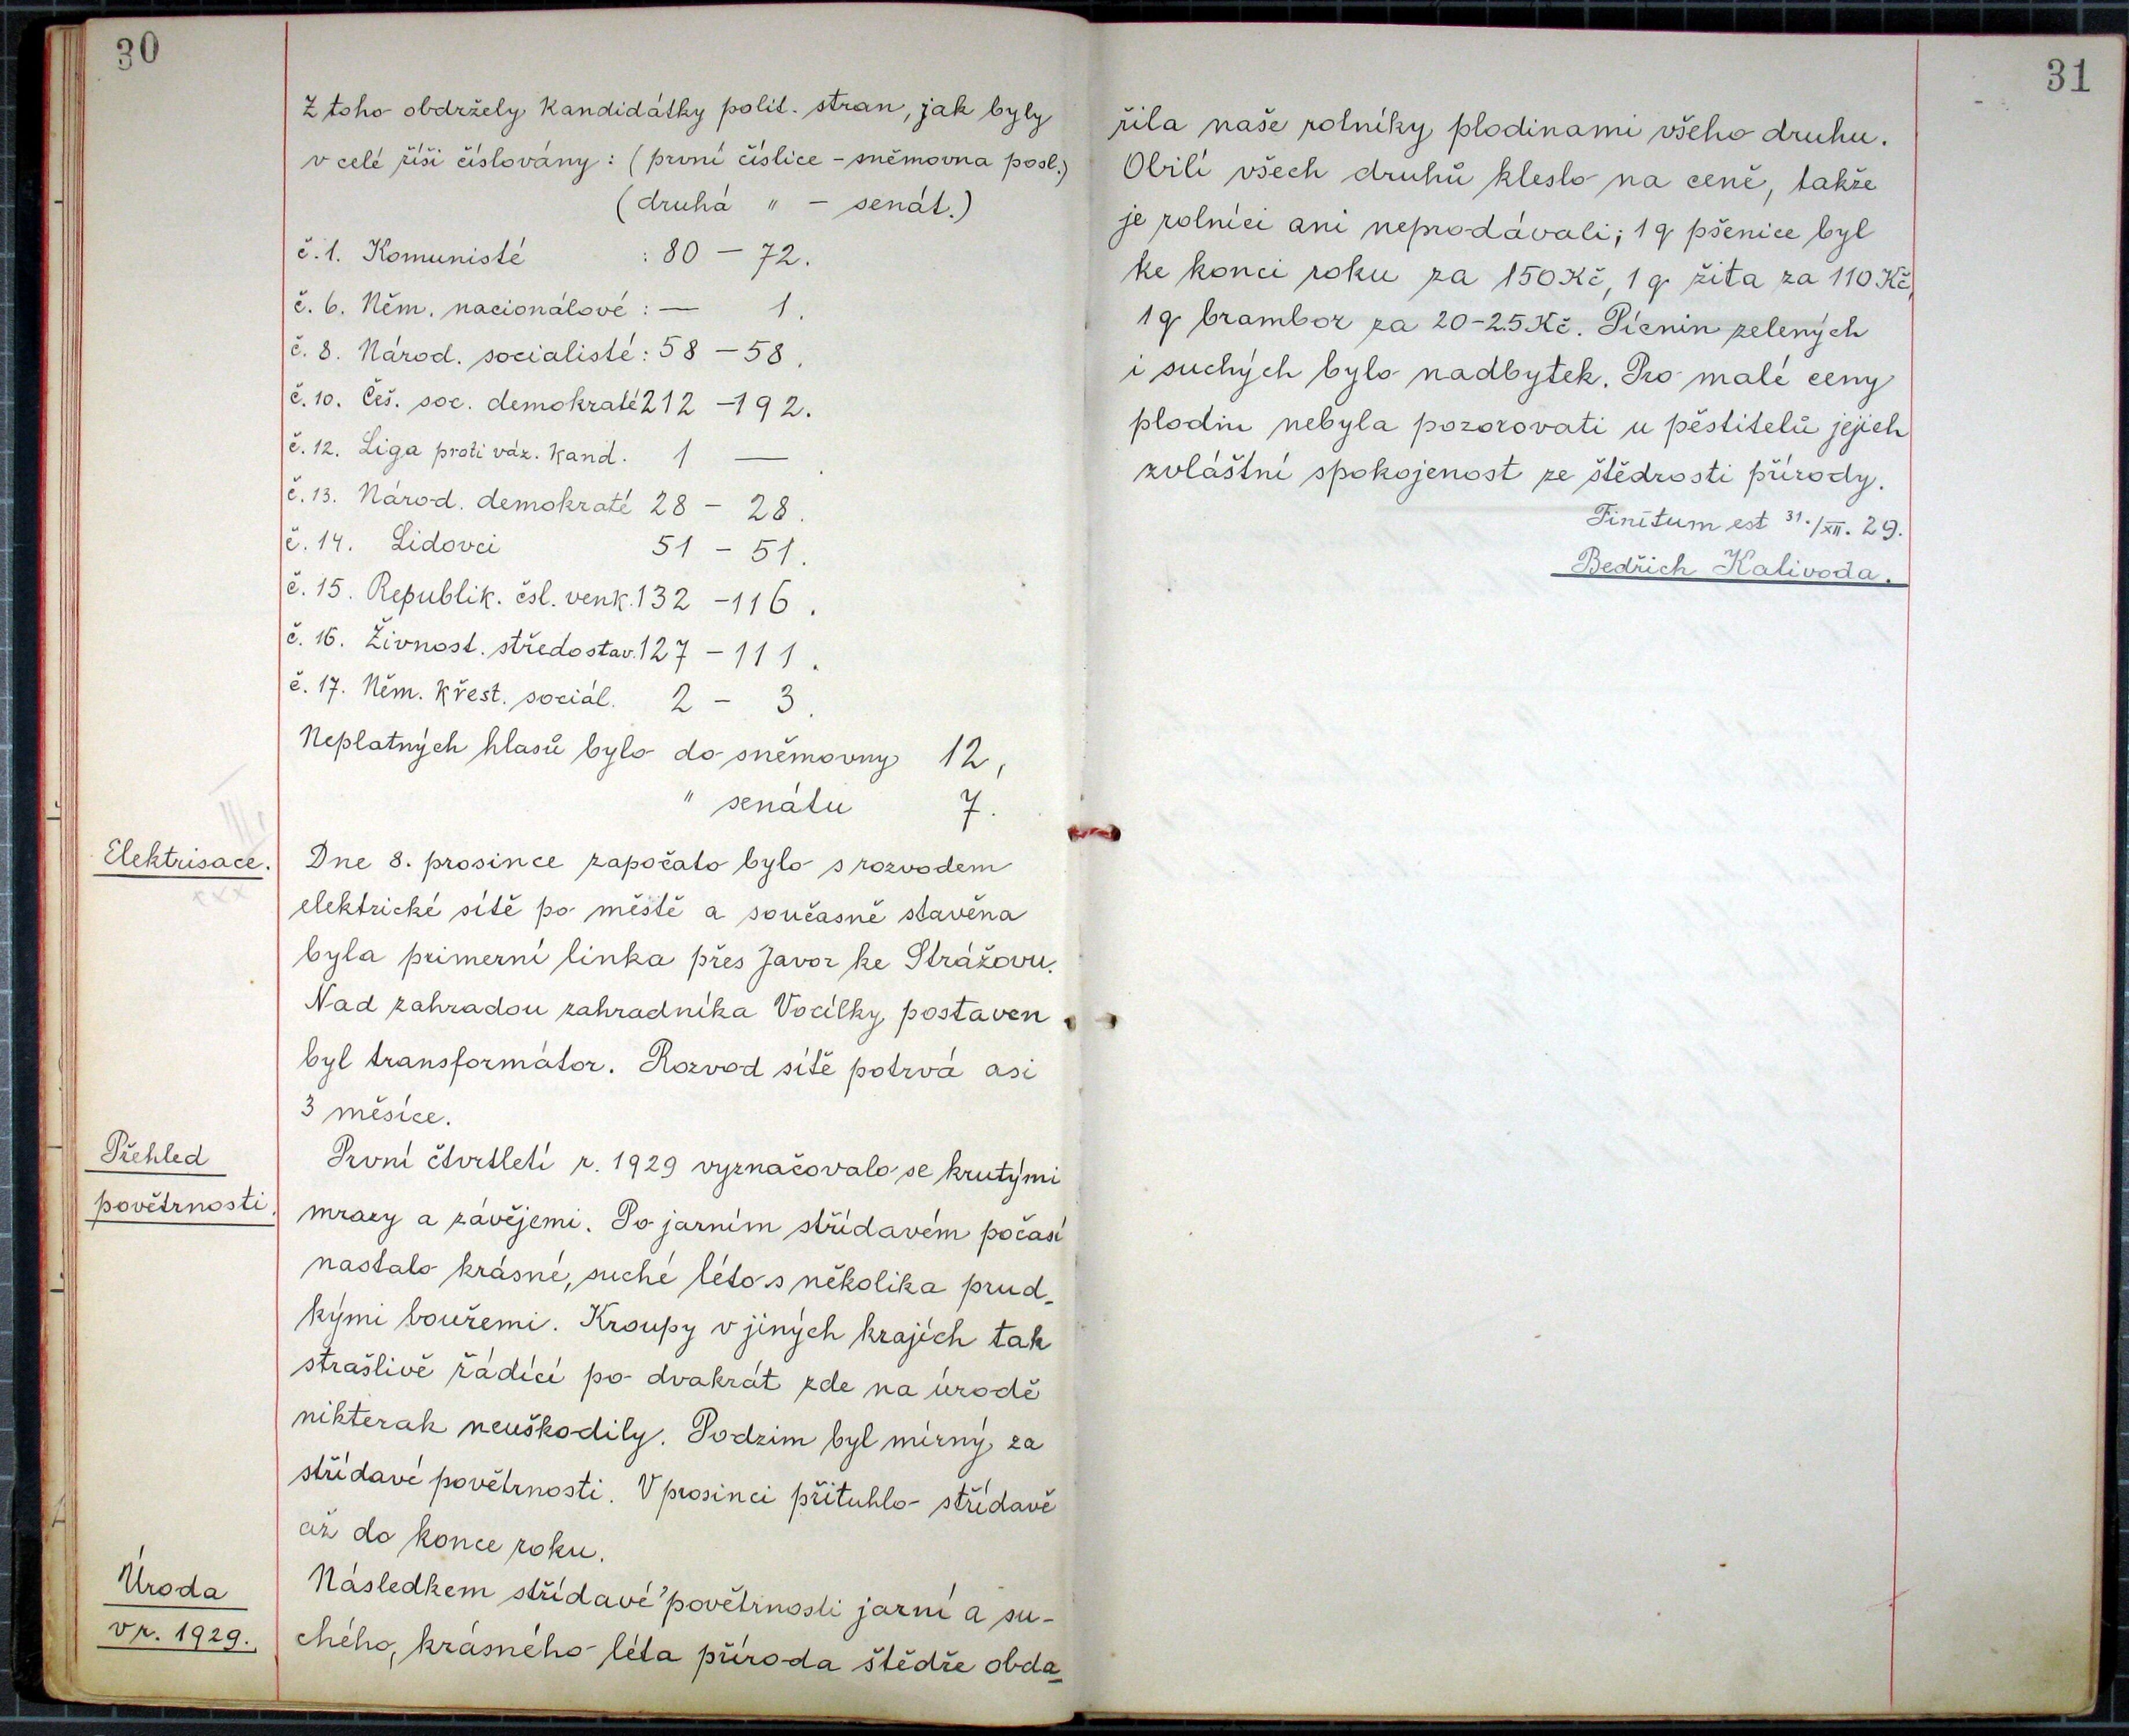 30
Z toho obdržely kandidátky polit. stran, jak byly
v celé říši číslovány: (první číslice - sněmovna posl.)
(druhá " - senát.)
č. 1. Komunisté : 80 - 72.
č. 6. Něm. nacionálové : — 1.
č. 8. Národ. socialisté : 58 - 58.
č. 10. Češ. soc. demokraté 212 - 192.
č. 12. Liga proti váz. kand. 1 — .
č. 13. Národ. demokraté 28 - 28.
č. 14. Lidovci 51 - 51.
č. 15. Republik. čsl. venk. 132 - 116.
č. 16. Živnost. středostav. 127 - 111.
č. 17. Něm. křest. sociál. 2 - 3.
Neplatných hlasů bylo do sněmovny 12,
" senátu 7.
Elektrisace.
Dne 8. prosince započato bylo s rozvodem
elektrické sítě po městě a současně stavěna
byla primerní linka přes Javor ke Strážovu.
Nad zahradou zahradníka Vocílky postaven
byl transformátor. Rozvod sítě potrvá asi
3 měsíce.
Přehled
povětrnosti.
První čtvrtletí r. 1929 vyznačovalo se krutými
mrazy a závějemi. Po jarním střídavém počasí
nastalo krásné, suché léto s několika prud-
kými bouřemi. Kroupy v jiných krajích tak
strašlivě řádící po dvakrát zde na úrodě
nikterak neuškodily. Podzim byl mírný za
střídavé povětrnosti. V prosinci přituhlo střídavě
až do konce roku.
Úroda
v r. 1929.
Následkem střídavé povětrnosti jarní a su-
chého, krásného léta příroda štědře obda-
31
řila naše rolníky plodinami všeho druhu.
Obilí všech druhů kleslo na ceně, takže
je rolníci ani neprodávali; 1 q pšenice byl
ke konci roku za 150 Kč, 1 q žita za 110 Kč,
1 q brambor za 20-25 Kč. Pícnin zelených
i suchých bylo nadbytek. Pro malé ceny
plodin nebyla pozorovati u pěstitelů jejich
zvláštní spokojenost ze štědrosti přírody.
Finitum est 31./XII. 29.
Bedřich Kalivoda.